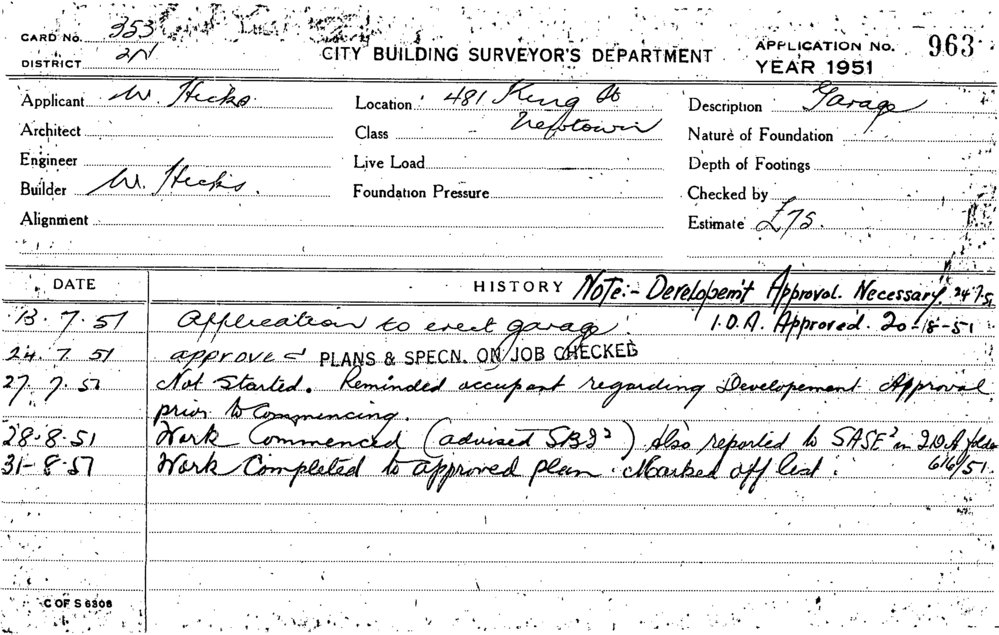 CARD No. 353
DISTRICT 2N
CITY BUILDING SURVEYOR'S DEPARTMENT
APPLICATION No. 963
YEAR 1951
Applicant W. Hicks
Architect
Engineer
Builder W. Hicks.
Alignment
Location 481 King St
Newtown
Class
Live Load
Foundation Pressure
Description Garage
Nature of Foundation
Depth of Footings
Checked by
Estimate £75.
DATE HISTORY Note:- Developem't Approval Necessary. 24.7.51
13.7.51 Application to erect garage. I.D.A. Approved. 20-18-51
24.7.51 approved PLANS & SPECN. ON JOB CHECKED
27.7.51 Not Started. Reminded occupant regarding Developement Approval
prior to Commencing.
28.8.51 Work Commenced (advised SBI²) Also reported to SASE² in I.D.A. folder
31-8-51 Work Completed to approved plan. Marked off list. 6/6/51.
C OF S 6306